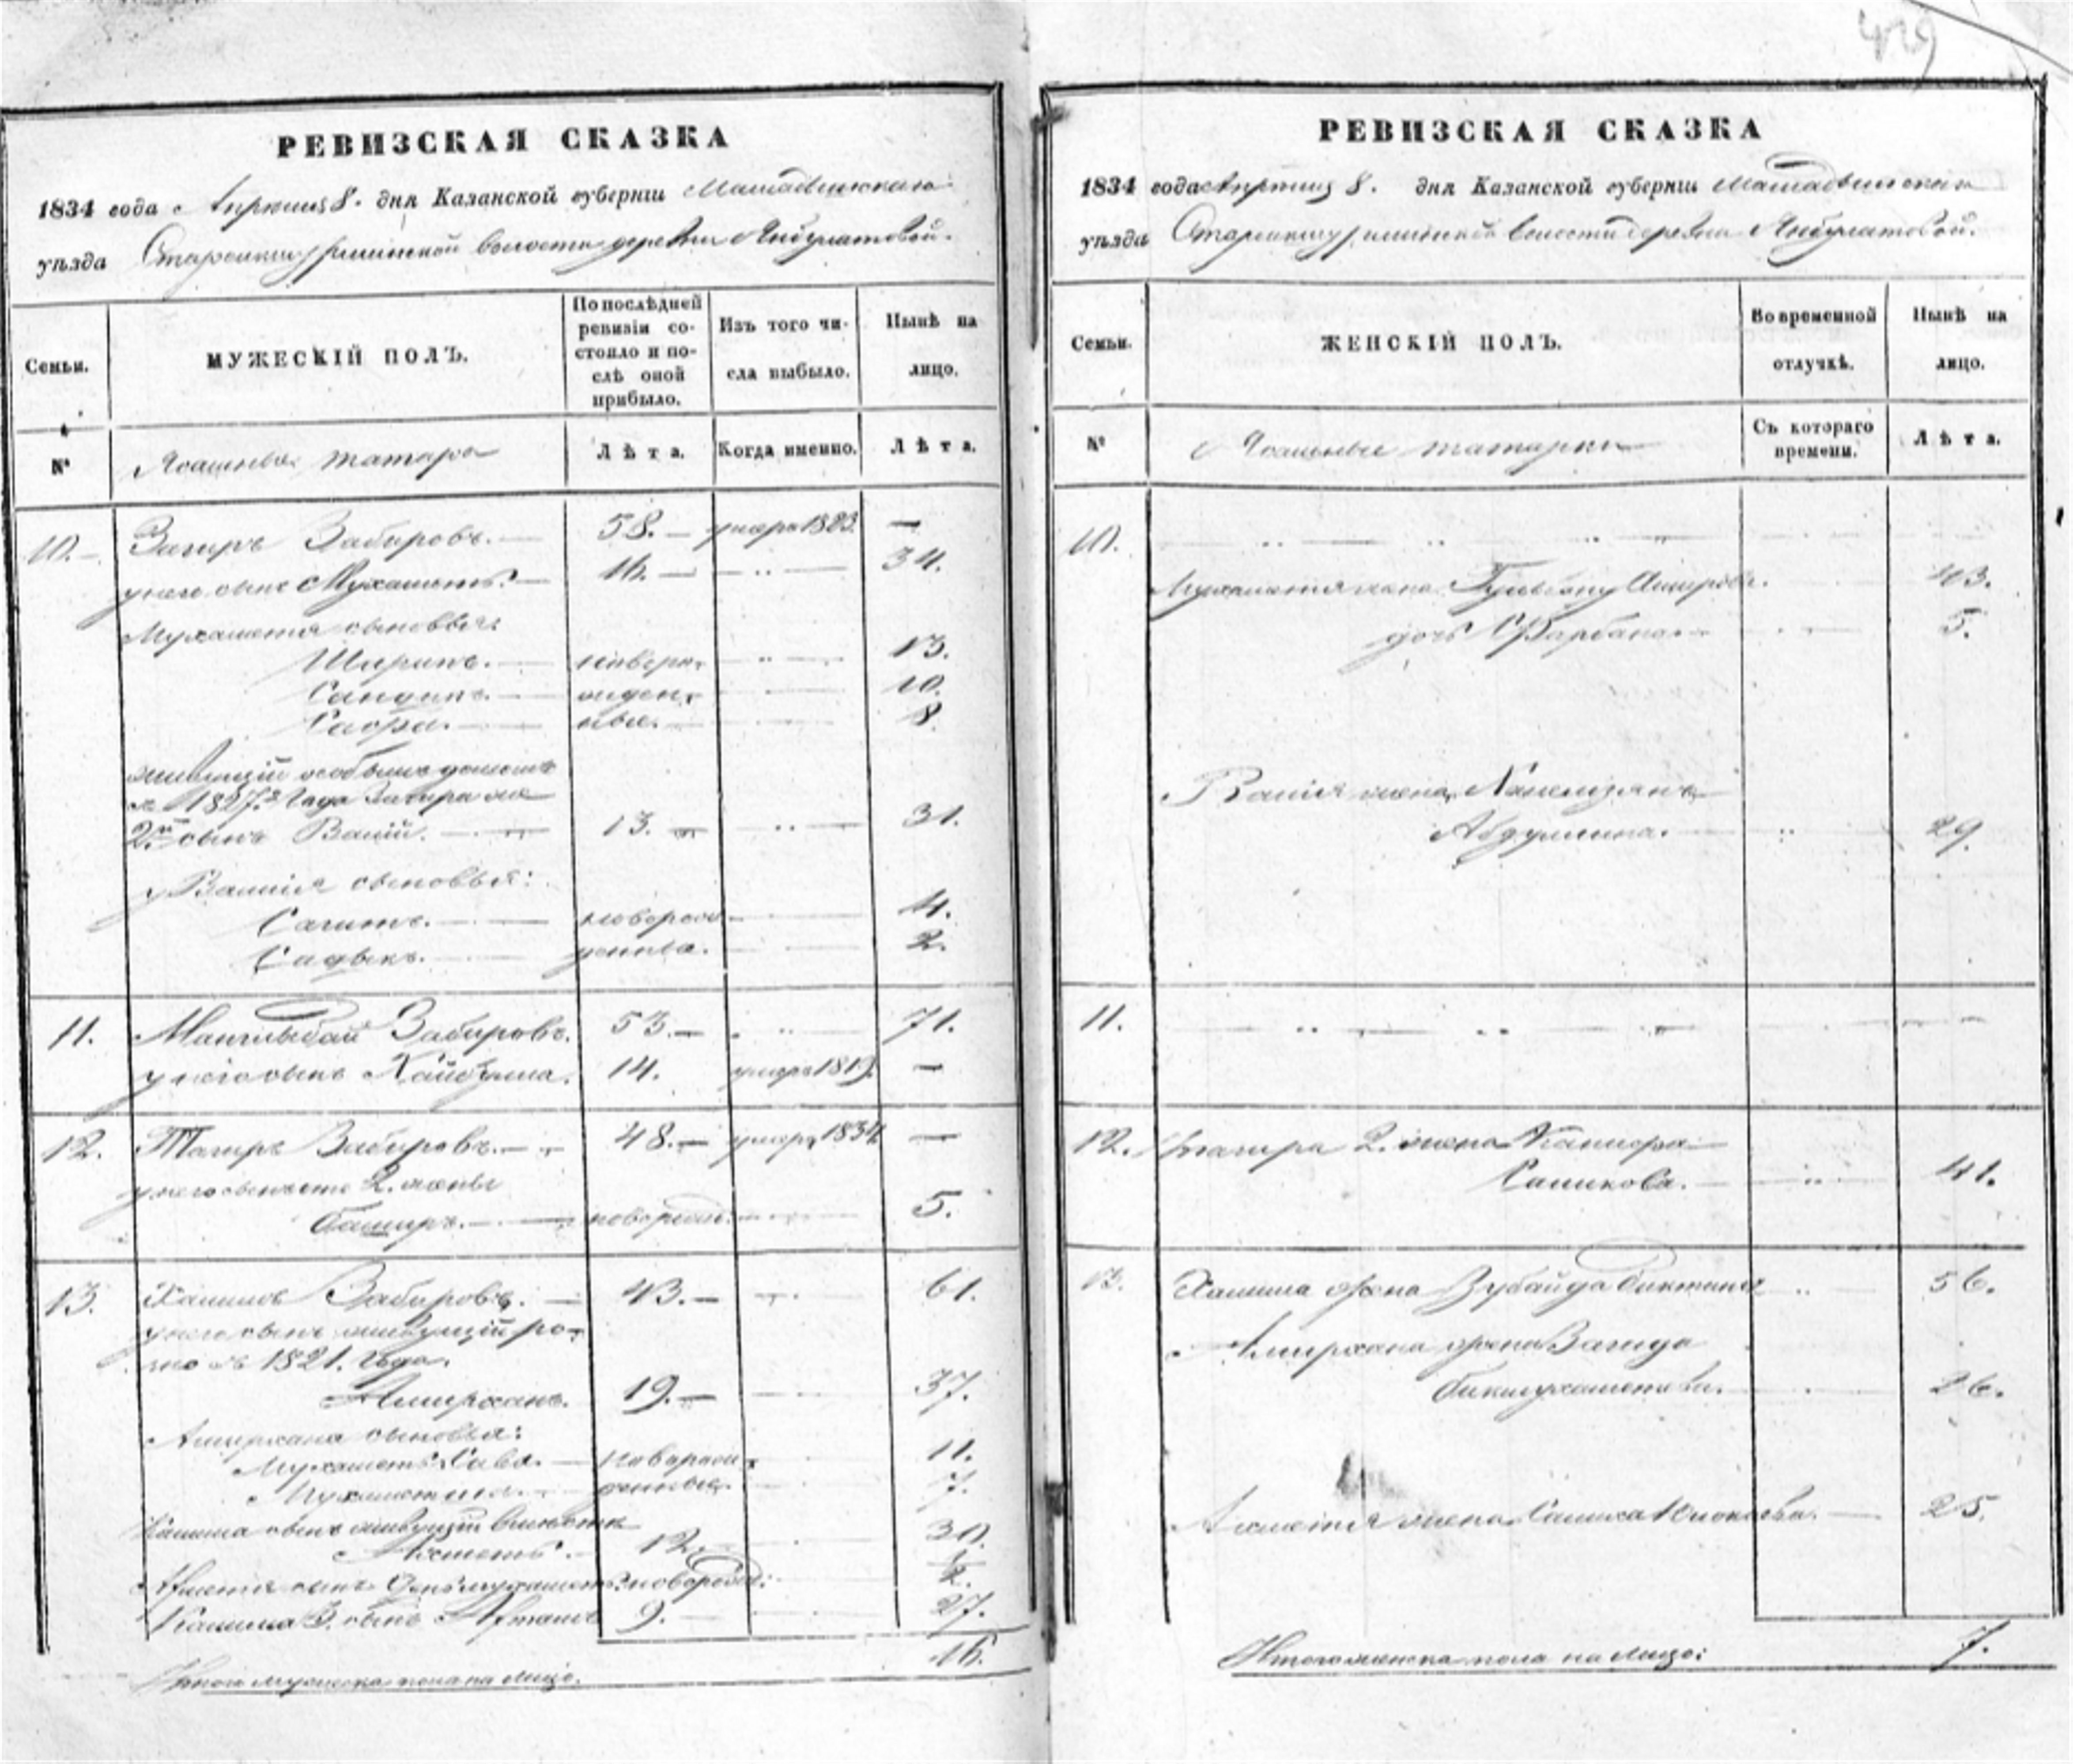 429
РЕВИЗСКАЯ СКАЗКА
1834 года Апреля 8. дня Казанской губерніи Мамадышскаго
уѣзда волости деревни Янбулатовой.
Семьи.
МУЖЕСКІЙ ПОЛЪ.
По послѣдней ревизіи состояло и послѣ оной прибыло.
Изъ того числа выбыло.
Нынѣ на лицо.
№
Ясашные татара
Лѣта.
Когда именно.
Лѣта.
10. Загиръ Забировъ. 58. умеръ 1823. —
у него сынъ Мухаметъ. 16. 34.
Мухаметя сыновья:
Шарипъ. новоро- 13.
жден- 10.
ные. 8.
живущій особымъ домомъ
съ 1827го года Загира же
2й сынъ Валій. 13. 31.
у Валія сыновья:
Сагитъ. новорож- 4.
Садыкъ. денные. 2.
11. Манглыбай Забировъ. 53. 71.
у него сынъ Хайбулла. 14. умеръ 1819. —
12. Тагиръ Забировъ. 48. умеръ 1834 —
у него сынъ отъ 2. жены
Баширъ. новорожд. 5.
13. Халилъ Забировъ. 43. 61.
у него сынъ живущій ро-
зно съ 1821. года.
Амирханъ. 19. 37.
Амирхана сыновья:
новорож- 11.
денные. 7.
Халила сынъ живущій вмѣстѣ
Ахметъ. 12. 30.
Ахметя сынъ новорожд: 1/2.
Халила 3. сынъ 9. 27.
Итого мужеска пола на лицо. 16.
РЕВИЗСКАЯ СКАЗКА
1834 года Апреля 8. дня Казанской губерніи Мамадышскаго
уѣзда волости деревни Янбулатовой.
Семьи.
ЖЕНСКІЙ ПОЛЪ.
Во временной отлучкѣ.
Нынѣ на лицо.
№
Ясашные татарки
Съ котораго времени.
Лѣта.
10.
Мухаметя жена 43.
дочь 5.
Валія жена
Абдуллина. 29.
11.
12. Тагира 2. жена
41.
13. Халила жена Зубайда 56.
Амирхана жена Вагида
Бикмухаметева. 26.
Ахметя жена 25.
Итого женска пола на лицо: 7.